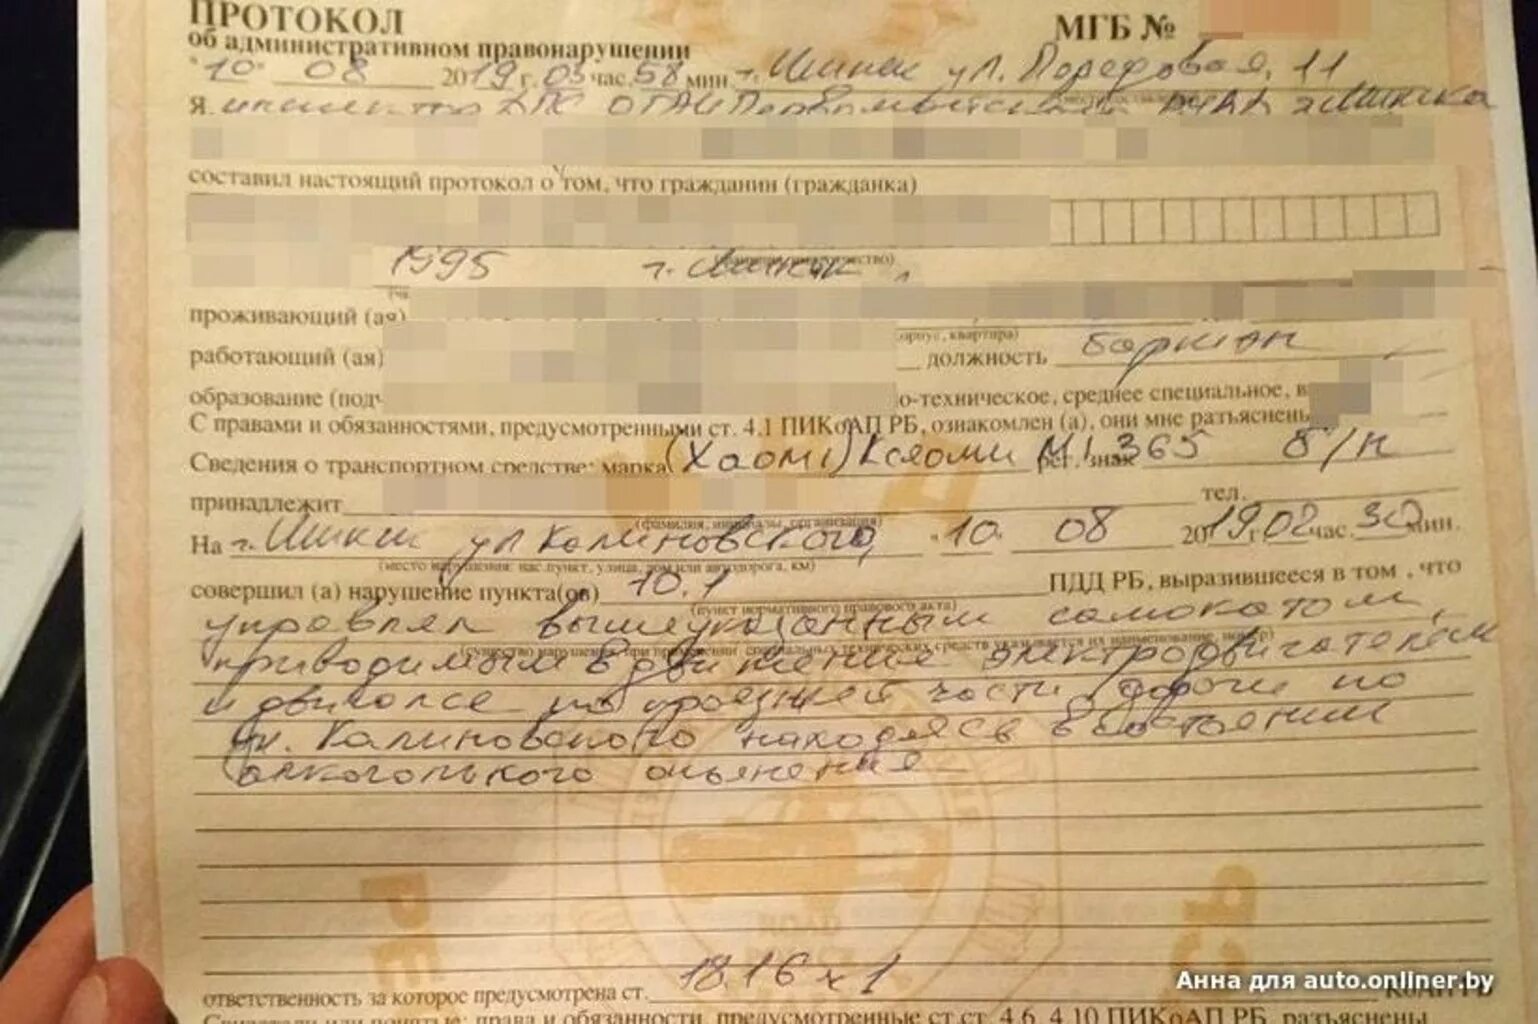 ПРОТОКОЛ МГБ №
об административном правонарушении
"10" 08 2019 г. 03 час. 58 мин. г. Минск ул. Передовая, 11
Я, инспектор ДПС ОГАИ Первомайского РУВД г. Минска
составил настоящий протокол о том, что гражданин (гражданка)
1995 г. Минск,
проживающий (ая)
корпус, квартира)
работающий (ая) должность бармен
образование (подч о-техническое, среднее специальное, в
С правами и обязанностями, предусмотренными ст. 4.1 ПИКоАП РБ, ознакомлен (а), они мне разъяснены
Сведения о транспортном средстве: марка (Xaomi) Ксяоми MI 365 рег. знак б/н
принадлежит тел.
(фамилия, инициалы, организация)
На г. Минск ул Калиновского, "10" 08 2019 г. 02 час. 30 мин.
(место нарушения: нас.пункт, улица, дом или автодорога, км)
совершил (а) нарушение пункта(ов) 10.1 ПДД РБ, выразившееся в том, что
(пункт нормативного правового акта)
управлял вышеуказанным самокатом,
(существо нарушения, при применении специальных технических средств указывается их наименование, номер)
приводимым в движение электродвигателем
и двигался по проезжей части дороги по
ул. Калиновского находясь в состоянии
алкогольного опьянения
ответственность за которое предусмотрена ст. 18.16 ч 1 КоАП РБ
Свидетели или понятые: права и обязанности, предусмотренные ст.ст. 4.6, 4.10 ПИКоАП РБ, разъяснены
Анна для auto.onliner.by